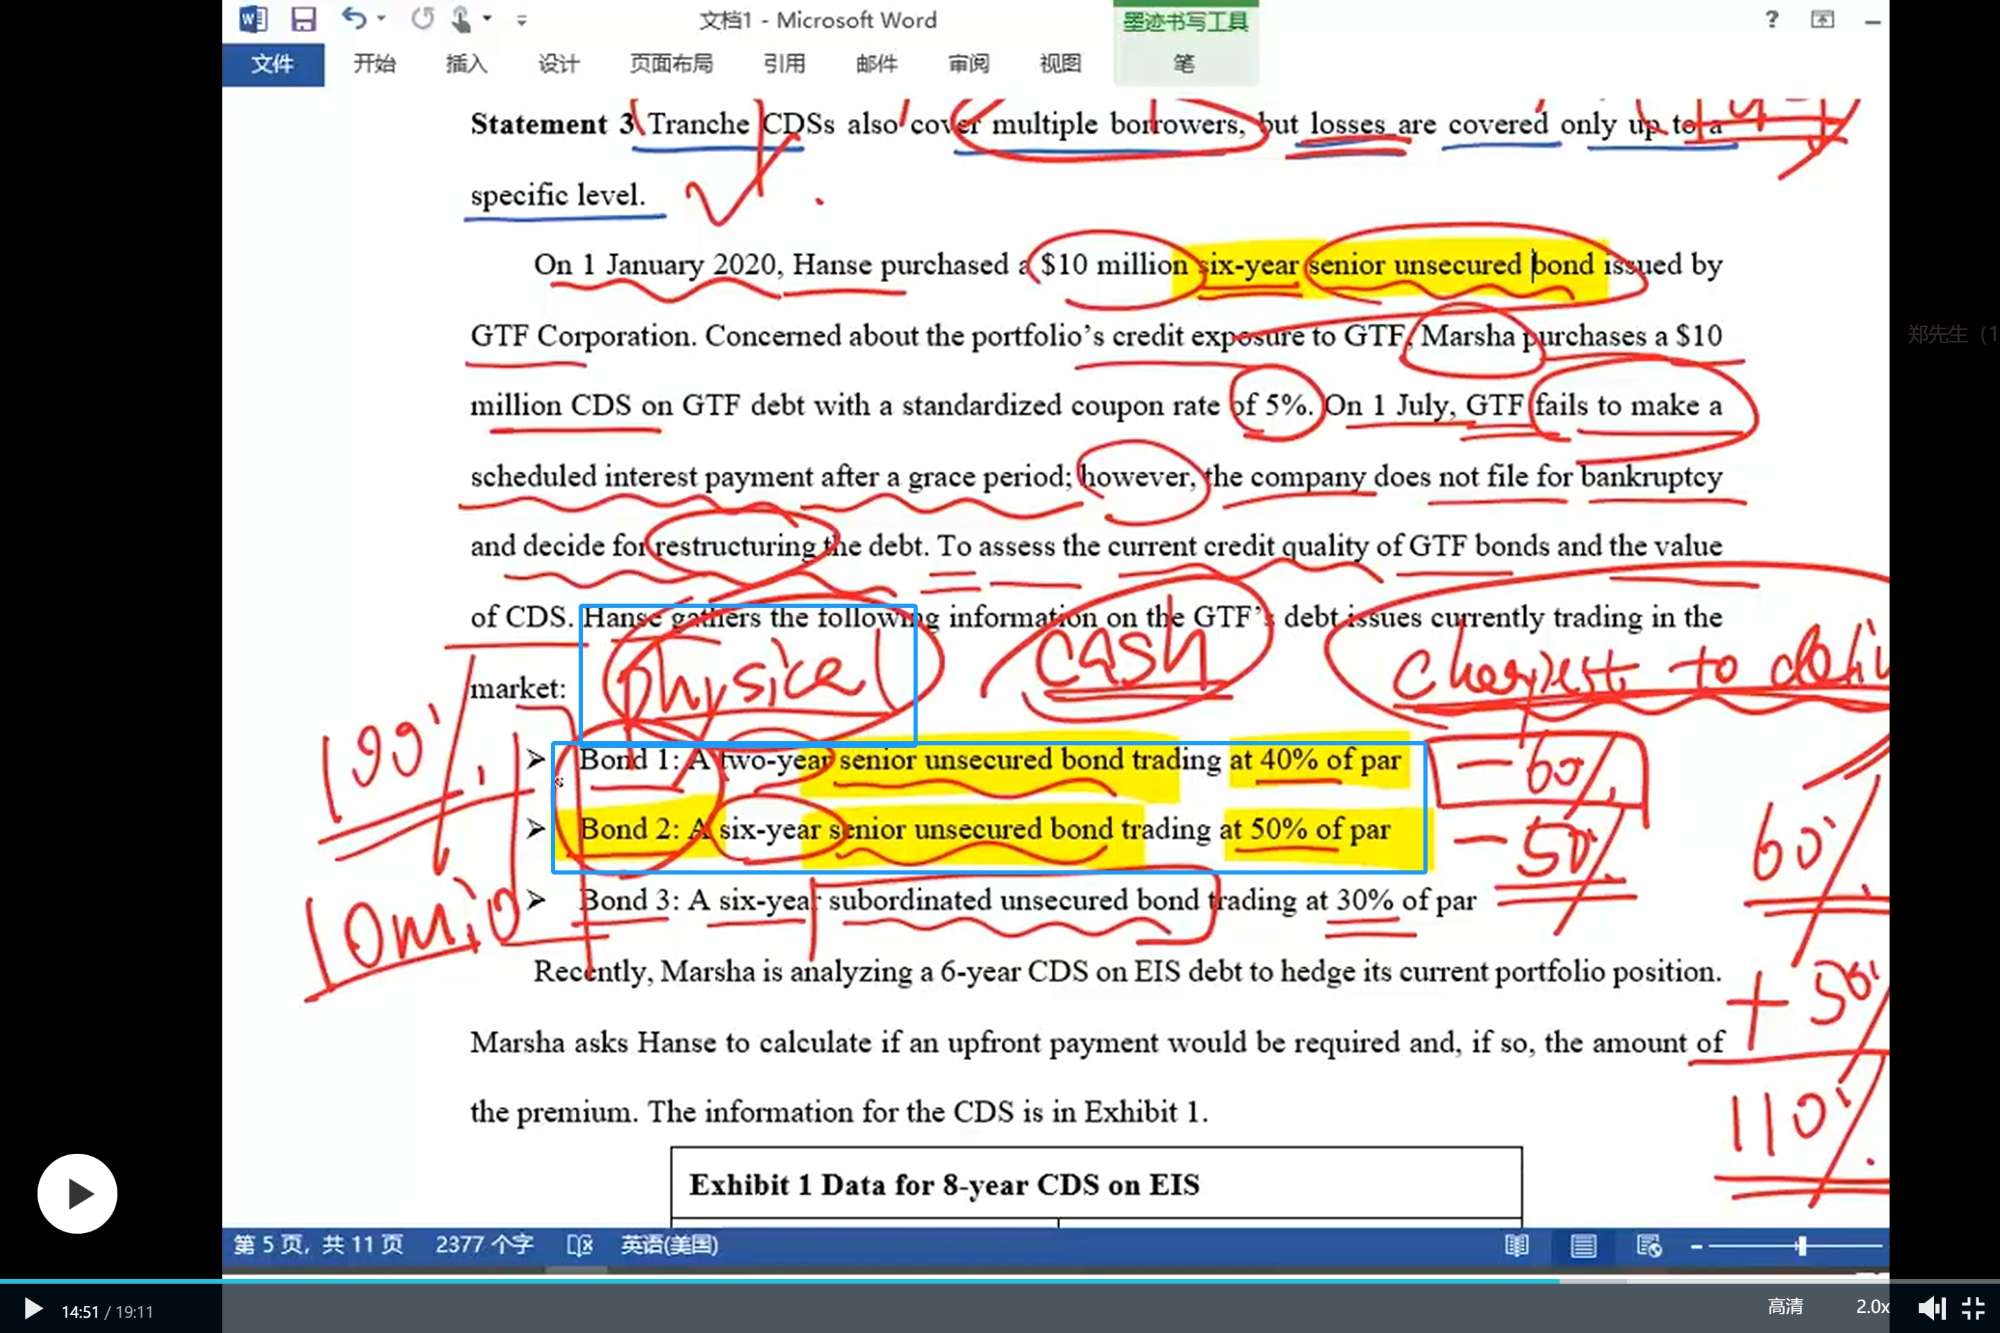 文档1 - Microsoft Word
墨迹书写工具
?
文件 开始 插入 设计 页面布局 引用 邮件 审阅 视图 笔
Statement 3 Tranche CDSs also cover multiple borrowers, but losses are covered only up to a
specific level.
On 1 January 2020, Hanse purchased a $10 million six-year senior unsecured bond issued by
GTF Corporation. Concerned about the portfolio's credit exposure to GTF, Marsha purchases a $10
million CDS on GTF debt with a standardized coupon rate of 5%. On 1 July, GTF fails to make a
scheduled interest payment after a grace period; however, the company does not file for bankruptcy
and decide for restructuring the debt. To assess the current credit quality of GTF bonds and the value
of CDS. Hanse gathers the following information on the GTF's debt issues currently trading in the
market:
physical
cash
cheapest to deli
Bond 1: A two-year senior unsecured bond trading at 40% of par
- 60%
100%
Bond 2: A six-year senior unsecured bond trading at 50% of par
- 50%
60%
Bond 3: A six-year subordinated unsecured bond trading at 30% of par
10mio
Recently, Marsha is analyzing a 6-year CDS on EIS debt to hedge its current portfolio position.
+ 50%
Marsha asks Hanse to calculate if an upfront payment would be required and, if so, the amount of
the premium. The information for the CDS is in Exhibit 1.
110%
Exhibit 1 Data for 8-year CDS on EIS
第 5 页，共 11 页 2377 个字 英语(美国)
14:51 / 19:11
高清 2.0x
郑先生（1